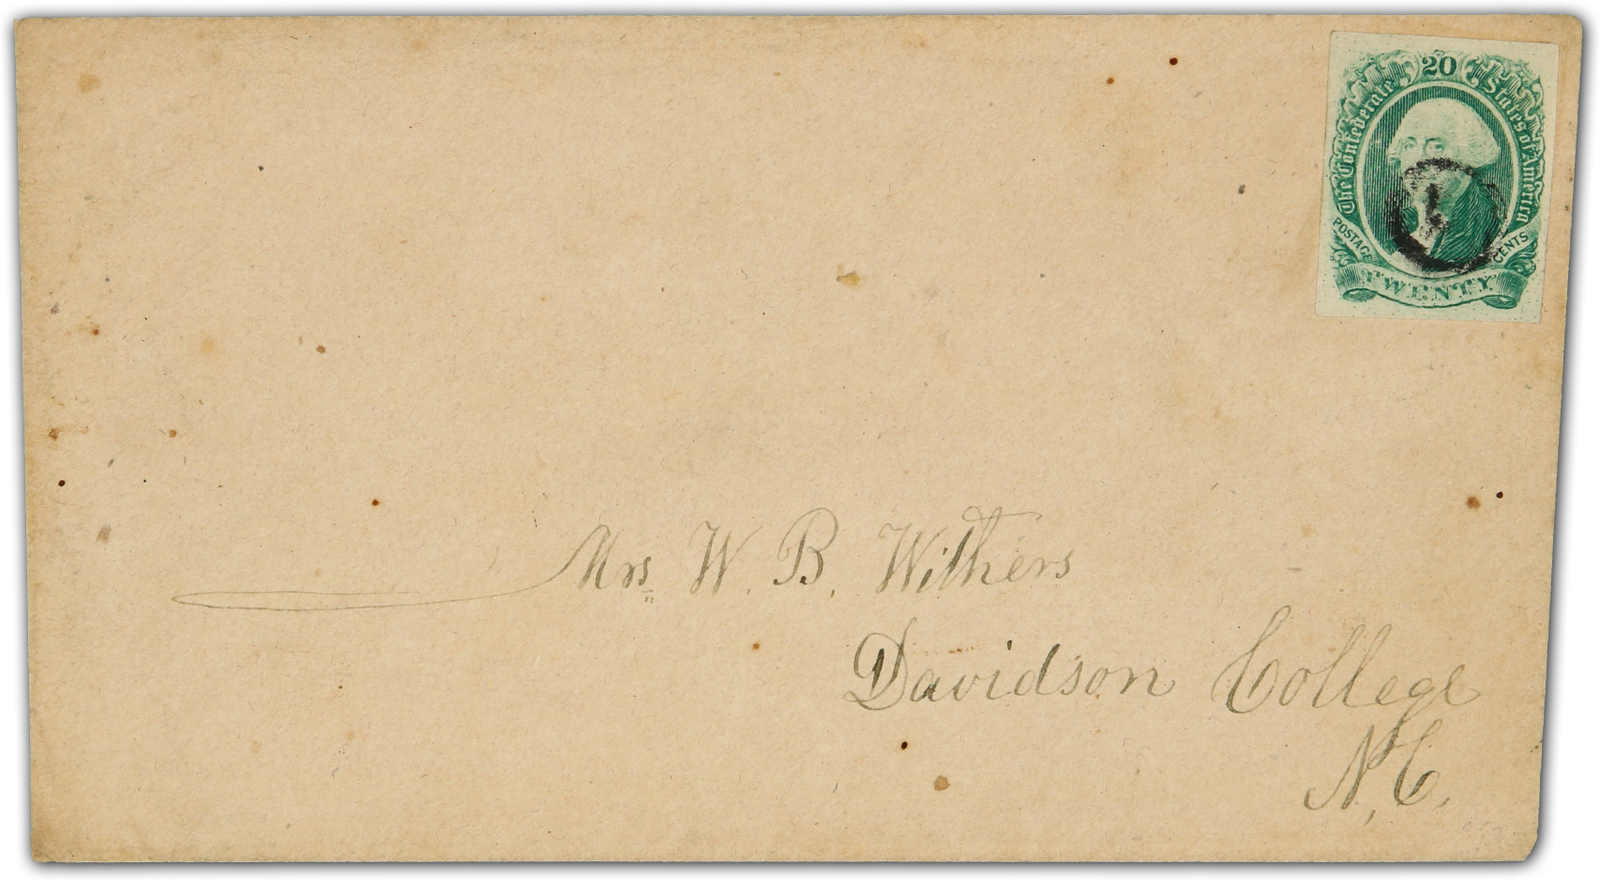 20
The Confederate States of America
POSTAGE CENTS
TWENTY
Mrs. W. B. Withers
Davidson College
N. C.